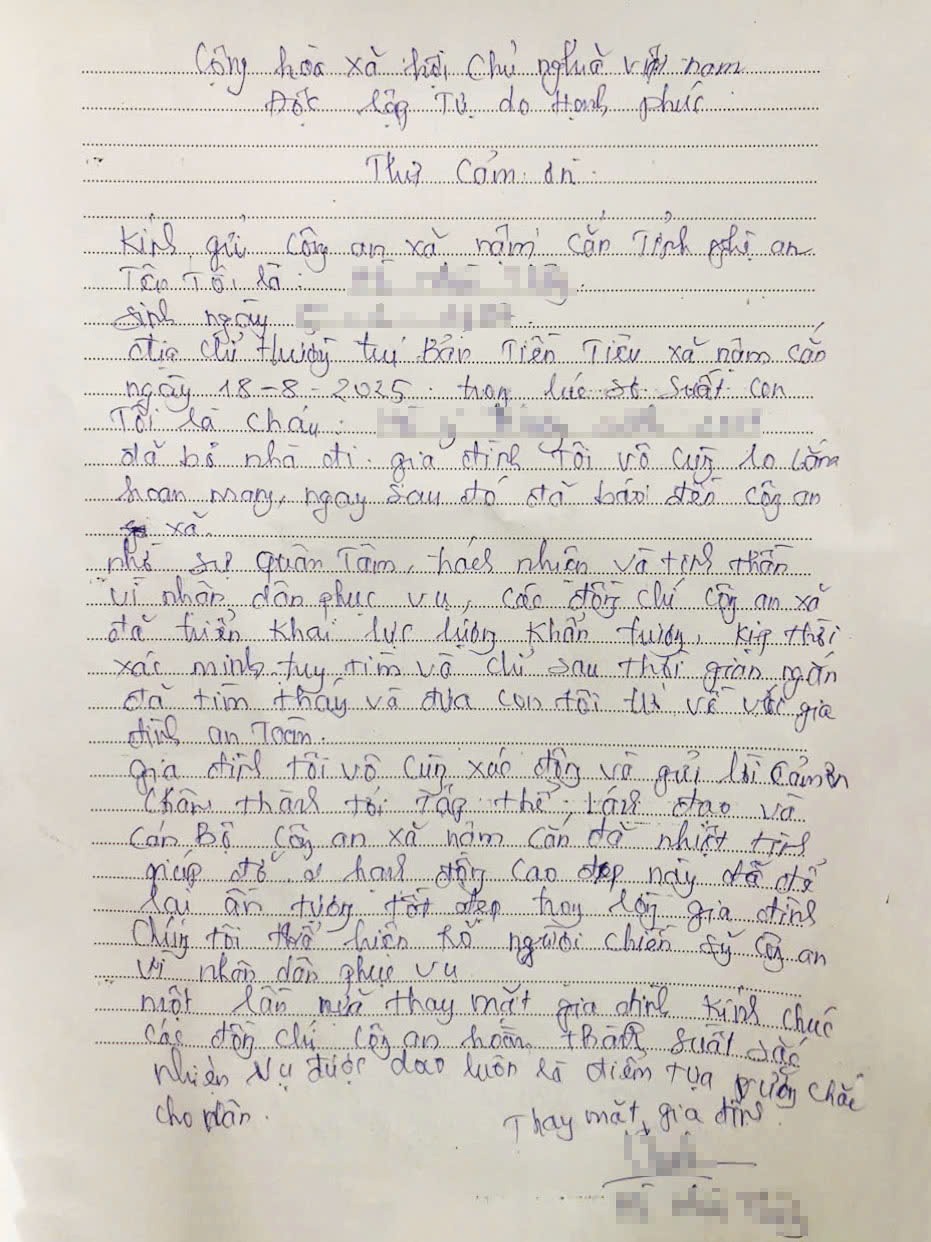 Cộng hòa xã hội Chủ nghĩa việt nam
Độc lập Tự do Hạnh phúc
Thư Cảm ơn
Kính gửi Công an xã nậm cắn Tỉnh nghệ an
Tên Tôi là:
sinh ngày
địa chỉ thường trú Bản Tiền Tiêu xã nậm cắn
ngày 18-8-2025. trong lúc sơ suất con
Tôi là cháu:
đã bỏ nhà đi. gia đình tôi vô cùng lo lắng
hoan mang, ngay sau đó đã báo đến công an
xã.
nhờ sự quan Tâm, trách nhiện và tinh thần
vì nhân dân phục vụ, các đồng chí công an xã
đã triển khai lực lượng khẩn trương, kịp thời
xác minh, truy tìm và chỉ sau thời gian ngắn
đã tìm thấy và đưa con tôi trở về với gia
đình an Toàn.
gia đình tôi vô cùng xúc động và gửi lời cảm ơn
chân thành tới Tập thể, Lãnh đạo và
cán Bộ Công an xã nậm cắn đã nhiệt tình
giúp đỡ. hành động cao đẹp này đã để
lại ấn tượng tốt đẹp trong lòng gia đình
chúng tôi thể hiện rõ người chiến sỹ công an
vì nhân dân phục vụ
một lần nữa thay mặt gia đình kính chúc
các đồng chí công an hoàn thành suất sắc
nhiện vụ được dao luôn là điểm tựa vững chắc
cho dân.
Thay mặt gia đình